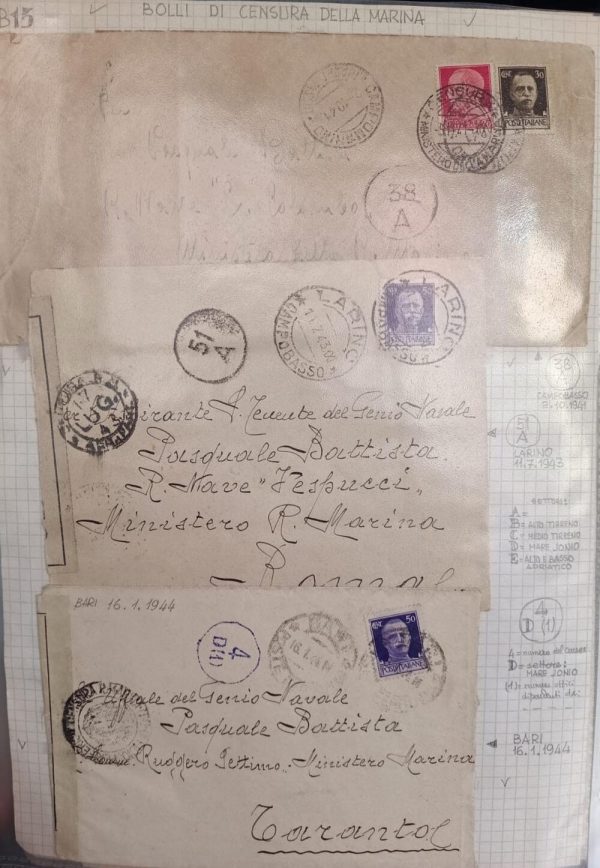 B15
BOLLI DI CENSURA DELLA MARINA
30
POSTE ITALIANE
CENSURA
MINISTERO DELLA MARINA
38
A
LARINO
CAMPOBASSO
11.7.43
LARINO
51
A
LUG.
Aspirante S. Tenente del Genio Navale
Pasquale Battista
R. Nave "Vespucci"
Ministero R. Marina
Roma
38
A
CAMPOBASSO
51
A
LARINO
11.7.1943
SETTORE:
A=
B= ALTO TIRRENO
C= MEDIO TIRRENO
D= MARE JONIO
E= ALTO E BASSO
ADRIATICO
4
D (1)
4= numero del censore
D= settore:
MARE JONIO
(1)= numero uffici
dipendenti da:
BARI
16.1.1944
BARI 16.1.1944
4
D(1)
50
POSTE ITALIANE
del Genio Navale
Pasquale Battista
Ruggero Settimo" Ministero Marina
Taranto